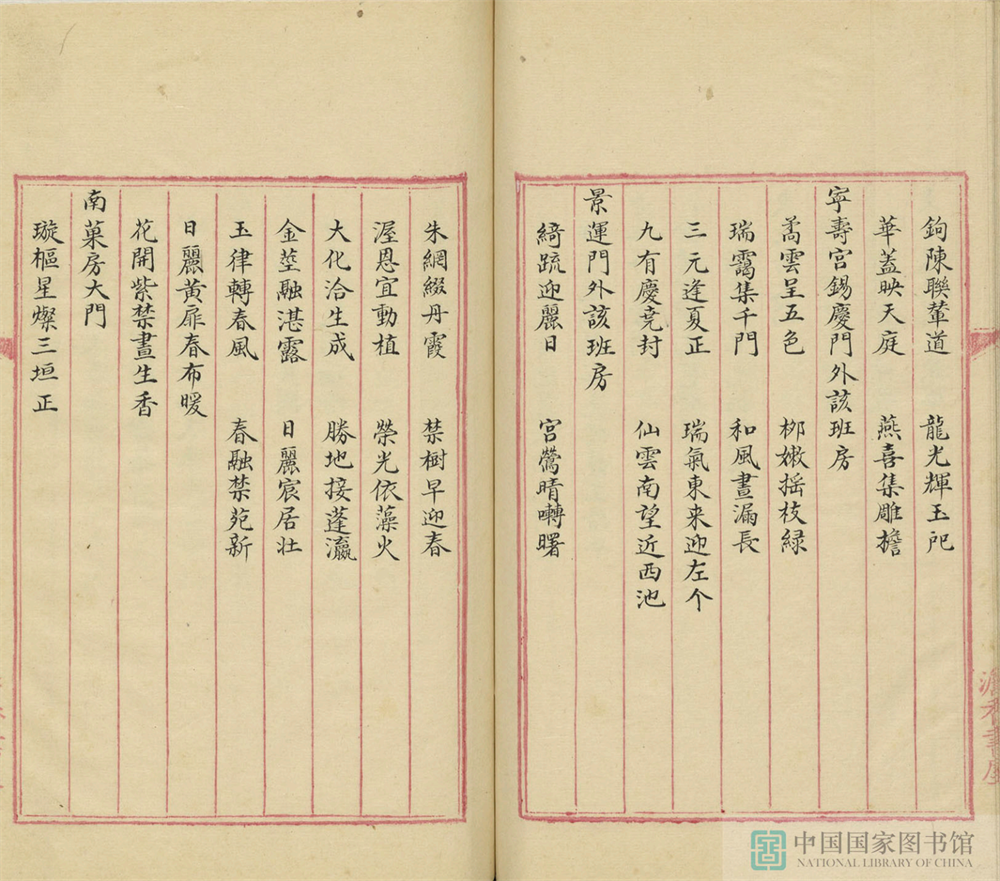 鉤陳聯輦道 龍光輝玉戺
華蓋映天庭 燕喜集雕檐
寧壽宮錫慶門外該班房
矞雲呈五色 柳嫩搖枝緑
瑞靄集千門 和風晝漏長
三元逢夏正 瑞氣東来迎左个
九有慶堯封 仙雲南望近西池
景運門外該班房
綺疏迎麗日 宮鶯晴囀曙
朱網綴丹霞 禁樹早迎春
渥恩宜動植 榮光依藻火
大化洽生成 勝地接蓬瀛
金莖融湛露 日麗宸居壯
玉律轉春風 春融禁苑新
日麗黃扉春布暖
花開紫禁晝生香
南菓房大門
璇樞星燦三垣正
中国国家图书馆
NATIONAL LIBRARY OF CHINA